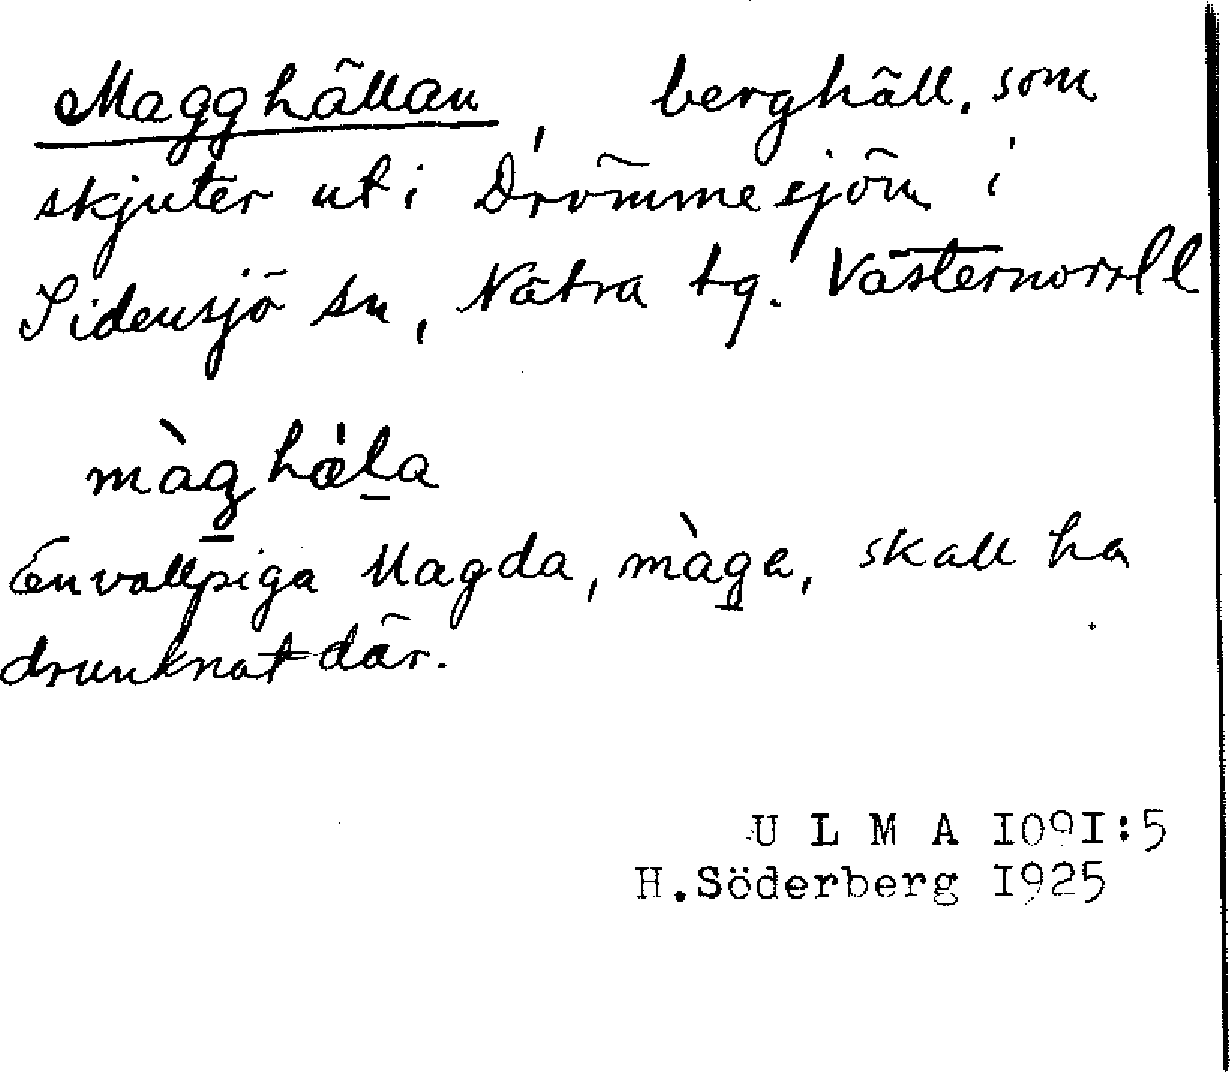 Magghällan, berghäll, som
skjuter ut i Drömmesjön i
Sidensjö sn, Nätra tg. Västernorrl l
màg hæ̀la
En vallpiga Magda, màga, skall ha
drunknat där.
U L M A I09I:5
H.Söderberg I925